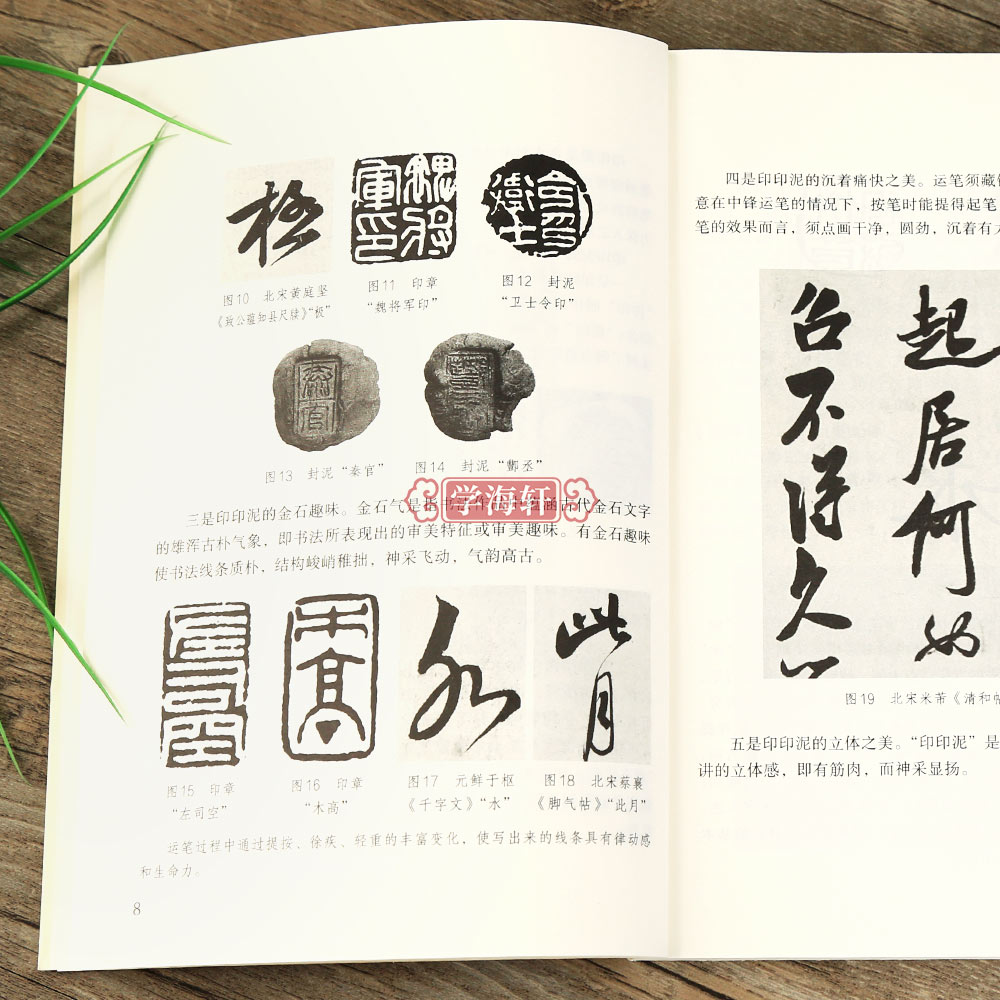 图10 北宋黄庭坚
《致公蕴知县尺牍》“极”
图11 印章
“魏将军印”
图12 封泥
“卫士令印”
图13 封泥 “秦官”
图14 封泥 “酈丞”
学海轩
三是印印泥的金石趣味。金石气是指书法作品中蕴涵古代金石文字
的雄浑古朴气象，即书法所表现出的审美特征或审美趣味。有金石趣味
使书法线条质朴，结构峻峭稚拙，神采飞动，气韵高古。
图15 印章
“左司空”
图16 印章
“木高”
图17 元鲜于枢
《千字文》“水”
图18 北宋蔡襄
《脚气帖》“此月”
运笔过程中通过提按、徐疾、轻重的丰富变化，使写出来的线条具有律动感
和生命力。
8
四是印印泥的沉着痛快之美。运笔须藏
意在中锋运笔的情况下，按笔时能提得起笔
笔的效果而言，须点画干净，圆劲，沉着有
起居何如
台不得久
图19 北宋米芾《清和帖
五是印印泥的立体之美。“印印泥”是
讲的立体感，即有筋肉，而神采显扬。